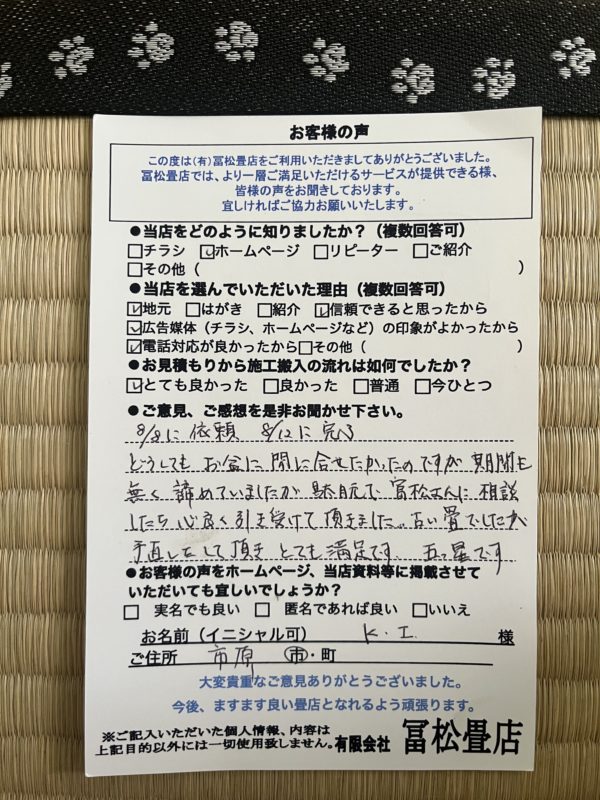 お客様の声
この度は(有)冨松畳店をご利用いただきましてありがとうございました。
冨松畳店では、より一層ご満足いただけるサービスが提供できる様、
皆様の声をお聞きしております。
宜しければご協力お願いいたします。
●当店をどのように知りましたか？（複数回答可）
□チラシ ☑ホームページ □リピーター □ご紹介
□その他（ ）
●当店を選んでいただいた理由（複数回答可）
☑地元 □はがき □紹介 ☑信頼できると思ったから
☑広告媒体（チラシ、ホームページなど）の印象がよかったから
☑電話対応が良かったから□その他（ ）
●お見積もりから施工搬入の流れは如何でしたか？
☑とても良かった □良かった □普通 □今ひとつ
●ご意見、ご感想を是非お聞かせ下さい。
8/8に依頼 8/12に完了
どうしても お盆に間に合せたかったのですが 期間も
無く 諦めていましたが 駄目元で 冨松さんに 相談
したら 心良く引き受けて頂きました。古い畳でしたが
手直しをして頂き とても 満足です、五つ星です
●お客様の声をホームページ、当店資料等に掲載させて
いただいても宜しいでしょうか？
□ 実名でも良い □ 匿名であれば良い □いいえ
お名前（イニシャル可） K.I. 様
ご住所 市原 市・町
大変貴重なご意見ありがとうございました。
今後、ますます良い畳店となれるよう頑張ります。
※ご記入いただいた個人情報、内容は
上記目的以外には一切使用致しません。有限会社 冨松畳店